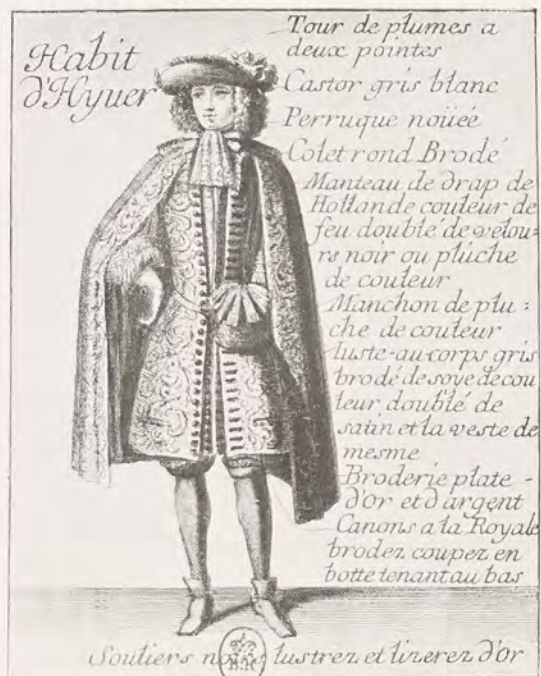 Habit
d'Hyuer
Tour de plumes a
deux pointes
Castor gris blanc
Perruque noüée
Colet rond Brodé
Manteau de drap de
Hollande couleur de
feu doublé de velou-
rs noir ou pluche
de couleur
Manchon de plu:
che de couleur
Iuste-au-corps gris
brodé de soye de cou
leur doublé de
satin et la veste de
mesme
Broderie plate-
d'or et d'argent
Canons a la Royale
brodez coupez en
botte tenant au bas
Souliers lustrez et lizerez d'or